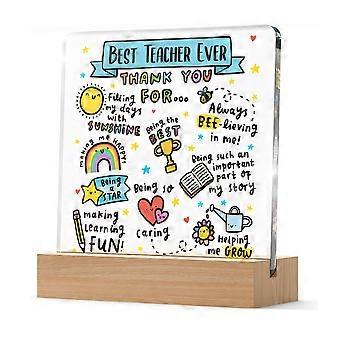 BEST TEACHER EVER
THANK YOU
FOR...
filling
my days
with
SUNSHINE
Being the
BEST
Always
BEE-lieving
in me!
making me HAPPY
Being such an
important
part of
my story
Being
a
STAR
Being so
caring
making
learning
FUN!
Helping
me GROW